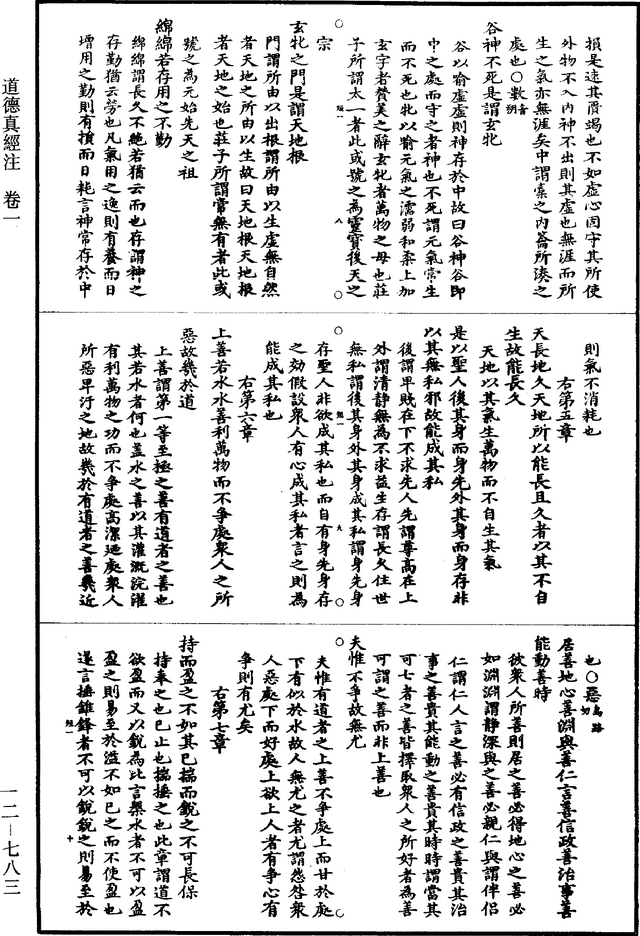 損是速其匱竭也不如虛心固守其所使
外物不入內神不出則其虛也無涯而所
生之氣亦無涯矣中謂橐之內籥所湊之
處也○數音朔
谷神不死是謂玄牝
谷以喻虛虛則神存於中故曰谷神谷即
中之處而守之者神也不死謂元氣常生
而不死也牝以喻元氣之濡弱和柔上加
玄字者贊美之辭玄牝者萬物之母也莊
子所謂太一者此或號之為靈寶後天之
宗
玄牝之門是謂天地根
門謂所由以出根謂所由以生虛無自然
者天地之所由以生故曰天地根天地根
者天地之始也莊子所謂常無有者此或
號之為元始先天之祖
綿綿若存用之不勤
綿綿謂長久不絕若猶云而也存謂神之
存勤猶云勞也凡氣用之逸則有養而日
增用之勤則有損而日耗言神常存於中
則氣不消耗也
右第五章
天長地久天地所以能長且久者以其不自
生故能長久
天地以其氣生萬物而不自生其氣
是以聖人後其身而身先外其身而身存非
以其無私邪故能成其私
後謂卑賤在下不求先人先謂尊高在上
外謂清靜無為不求益生存謂長久住世
無私謂後其身外其身成其私謂身先身
存聖人非欲成其私也而自有身先身存
之効假設眾人有心成其私者言之則為
能成其私也
右第六章
上善若水水善利萬物而不爭處眾人之所
惡故幾於道
上善謂第一等至極之善有道者之善也
其若水者何也蓋水之善以其灌溉浣濯
有利萬物之功而不爭處高潔迺處眾人
所惡卑汙之地故幾於有道者之善幾近
也○惡烏路切
居善地心善淵與善仁言善信政善治事善
能動善時
彼眾人所善則居之善必得地心之善必
如淵淵謂靜深與之善必親仁與謂伴侶
仁謂仁人言之善必有信政之善貴其治
事之善貴其能動之善貴其時時謂當其
可七者之善皆擇取眾人之所好者為善
可謂之善而非上善也
夫惟不爭故無尤
夫惟有道者之上善不爭處上而甘於處
下有似於水故人無尤之者尤謂怨咎眾
人惡處下而好處上欲上人者有爭心有
爭則有尤矣
右第七章
持而盈之不如其已揣而銳之不可長保
持奉之也已止也揣捶之也此章謂道不
欲盈而又以銳為比言槃水者不可以盈
盈之則易至於溢不如已之而不使盈也
遂言捶錐鋒者不可以銳銳之則易至於
道德真經注 卷一
一二—七八三